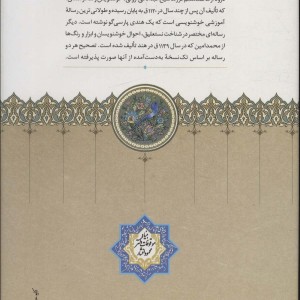 که تألیف آن پس از چند سال در ۱۲۳۰ق به پایان رسیده و طولانی‌ترین رسالهٔ
آموزشی خوشنویسی است که یک هندی پارسی‌گو نوشته است. دیگر
رساله‌ای مختصر در شناخت نستعلیق، احوال خوشنویسان و ابزار و رنگ‌ها
از محمدامین که در سال ۱۱۳۹ق در هند تألیف شده است. تصحیح هر دو
رساله بر اساس تک‌نسخهٔ به‌دست‌آمده از آنها صورت پذیرفته است.